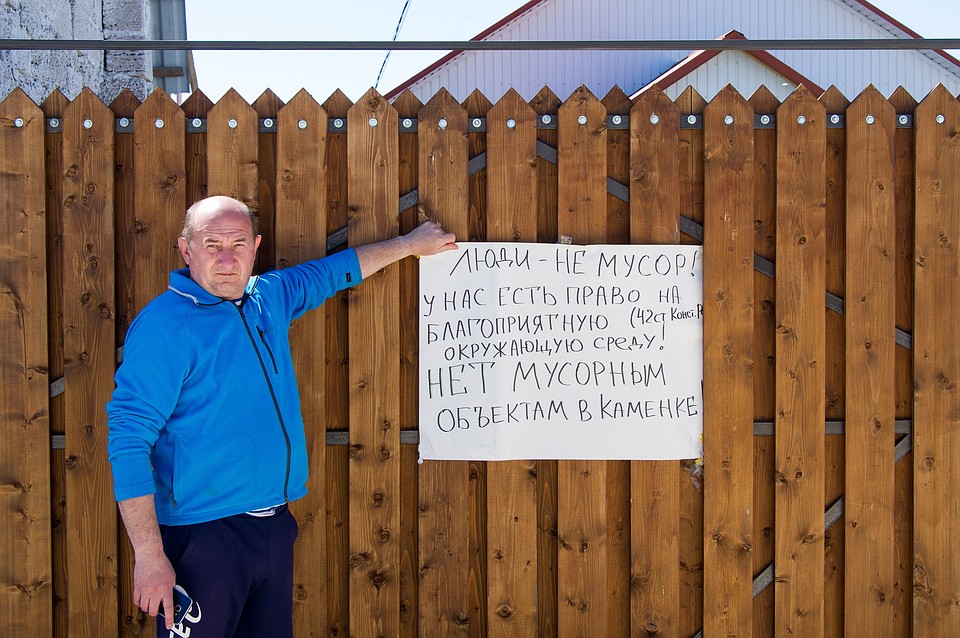 ЛЮДИ - НЕ МУСОР!
У НАС ЕСТЬ ПРАВО НА
БЛАГОПРИЯТНУЮ (42СТ КОНСТ.Р
ОКРУЖАЮЩУЮ СРЕДУ!
НЕТ МУСОРНЫМ
ОБЪЕКТАМ В КАМЕНКЕ